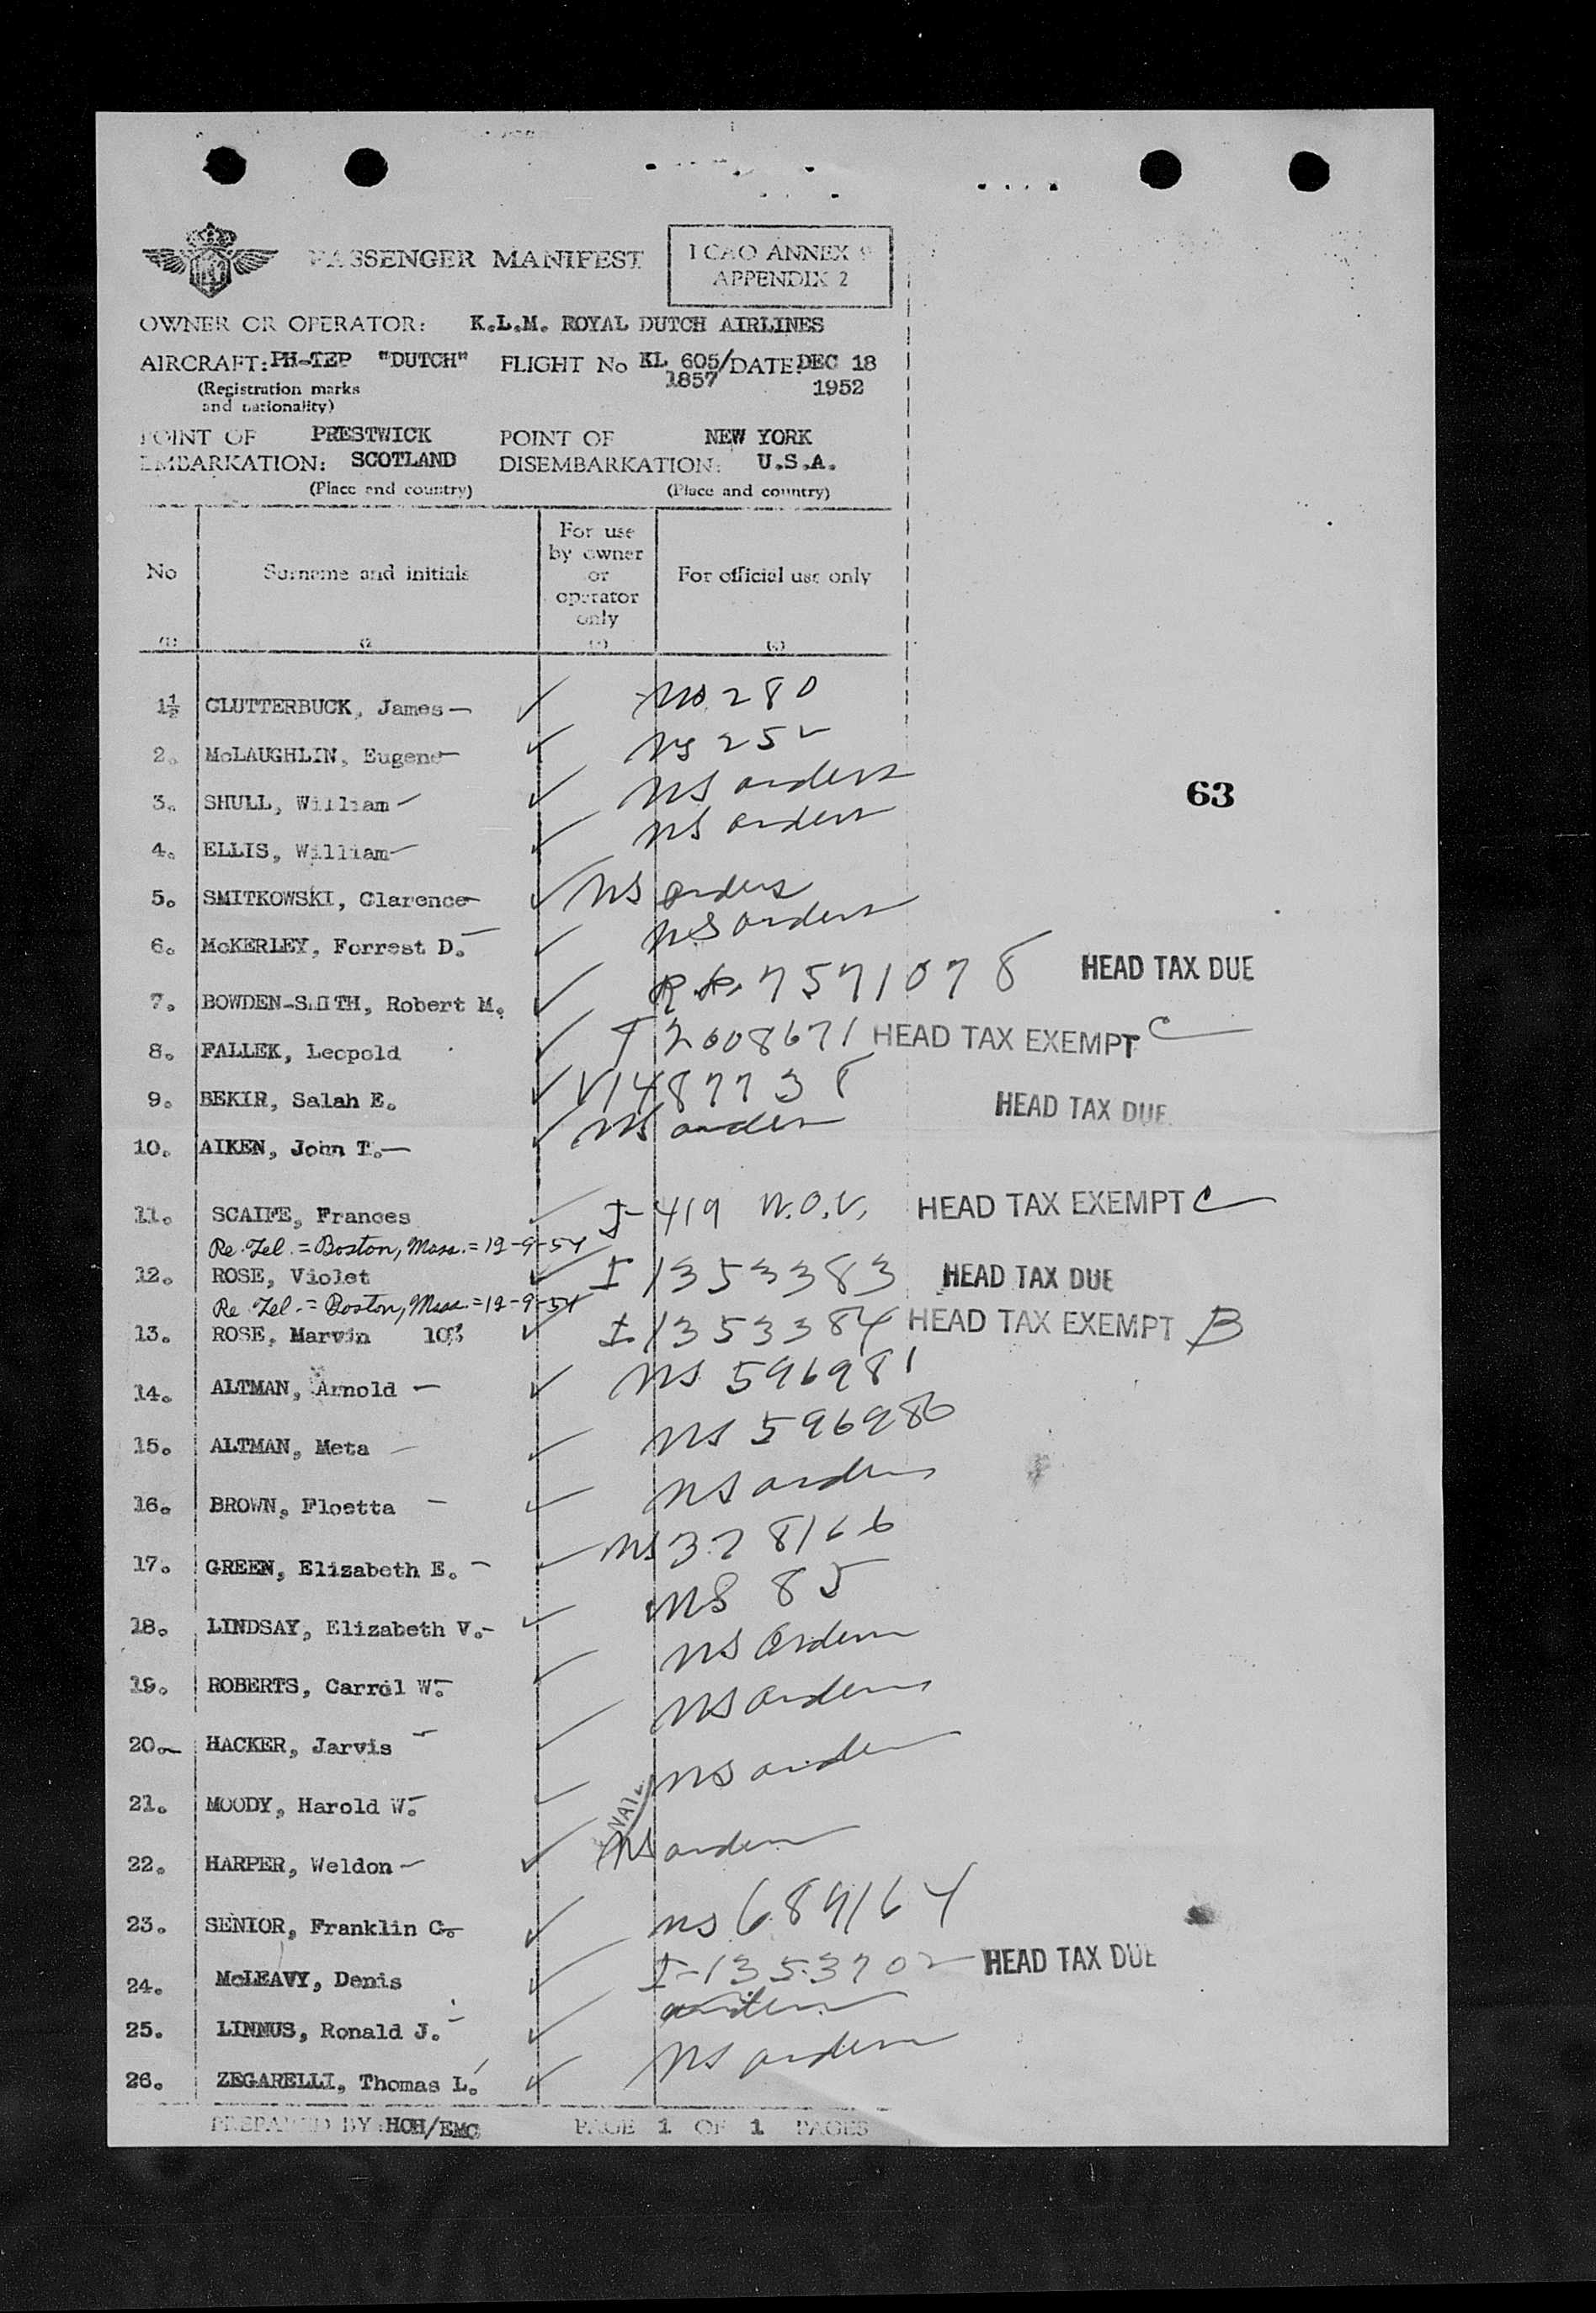 PASSENGER MANIFEST
I CAO ANNEX 9
APPENDIX 2
OWNER OR OPERATOR: K.L.M. ROYAL DUTCH AIRLINES
AIRCRAFT: PH-TEP "DUTCH" FLIGHT No KL 605/1857 DATE: DEC 18 1952
(Registration marks
and nationality)
POINT OF EMBARKATION: PRESTWICK SCOTLAND
(Place and country)
POINT OF DISEMBARKATION: NEW YORK U.S.A.
(Place and country)
No
Surname and initials
For use
by owner
or
operator
only
For official use only
1½ CLUTTERBUCK, James — ✓ NS 280
2. McLAUGHLIN, Eugene — ✓ NS 252
3. SHULL, William — ✓ NS orders
63
4. ELLIS, William — ✓ NS orders
5. SMITKOWSKI, Clarence — ✓ NS orders
6. McKERLEY, Forrest D. — ✓ NS orders
7. BOWDEN-SMITH, Robert M. ✓ 7571078 HEAD TAX DUE
8. FALLEK, Leopold ✓ T 2608671 HEAD TAX EXEMPT C
9. BEKIR, Salah E. ✓ V1487738 HEAD TAX DUE
10. AIKEN, John T. — ✓ NS orders
11. SCAIFE, Frances ✓ I-419 W.O.V. HEAD TAX EXEMPT C
Re. Tel. = Boston, Mass. = 12-9-54
12. ROSE, Violet ✓ I 1353383 HEAD TAX DUE
Re. Tel. = Boston, Mass. = 12-9-54
13. ROSE, Marvin 10% ✓ I 1353384 HEAD TAX EXEMPT B
14. ALTMAN, Arnold — ✓ NS 596981
15. ALTMAN, Meta — ✓ NS 596980
16. BROWN, Floetta — ✓ NS orders
17. GREEN, Elizabeth E. — ✓ NS 328166
18. LINDSAY, Elizabeth V. — ✓ NS 85
19. ROBERTS, Carrol W. — ✓ NS orders
20. HACKER, Jarvis — ✓ NS orders
21. MOODY, Harold W. — ✓ NS orders
22. HARPER, Weldon — ✓ NS orders
23. SENIOR, Franklin C. — ✓ NS 689164
24. McLEAVY, Denis ✓ I-1353702 HEAD TAX DUE
25. LINNUS, Ronald J. — ✓ orders
26. ZEGARELLI, Thomas L. ✓ NS orders
PREPARED BY: HOH/EMC PAGE 1 OF 1 PAGES